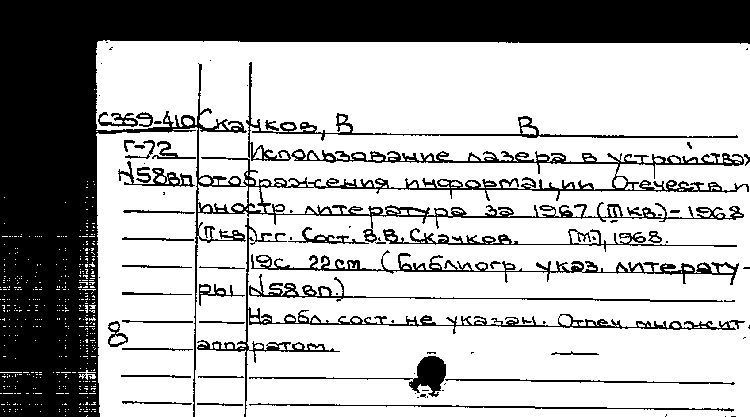 С369-410 Скачков, В В
Г-72 Использование лазера в устройствах
№58вп отображения информации. Отечеств. и
иностр. литература за 1967 (III кв.)-1968
(II кв.) гг. Сост. В.В. Скачков. [М.], 1968.
19с. 22см (Библиогр. указ. литерату-
ры №58вп.)
На обл. сост. не указан. Отпеч. множит.
аппаратом.